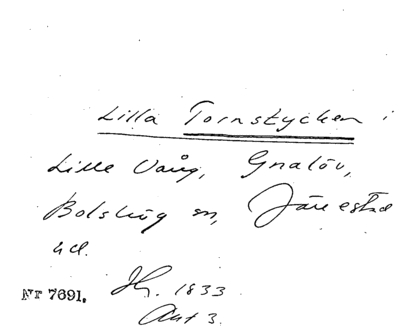 Lilla Tornstycken i
Lille Vång, Gnalöv,
Bolshög sn, Järrestad
hd.
Nr 7691. Jh. 1833
Akt 3.